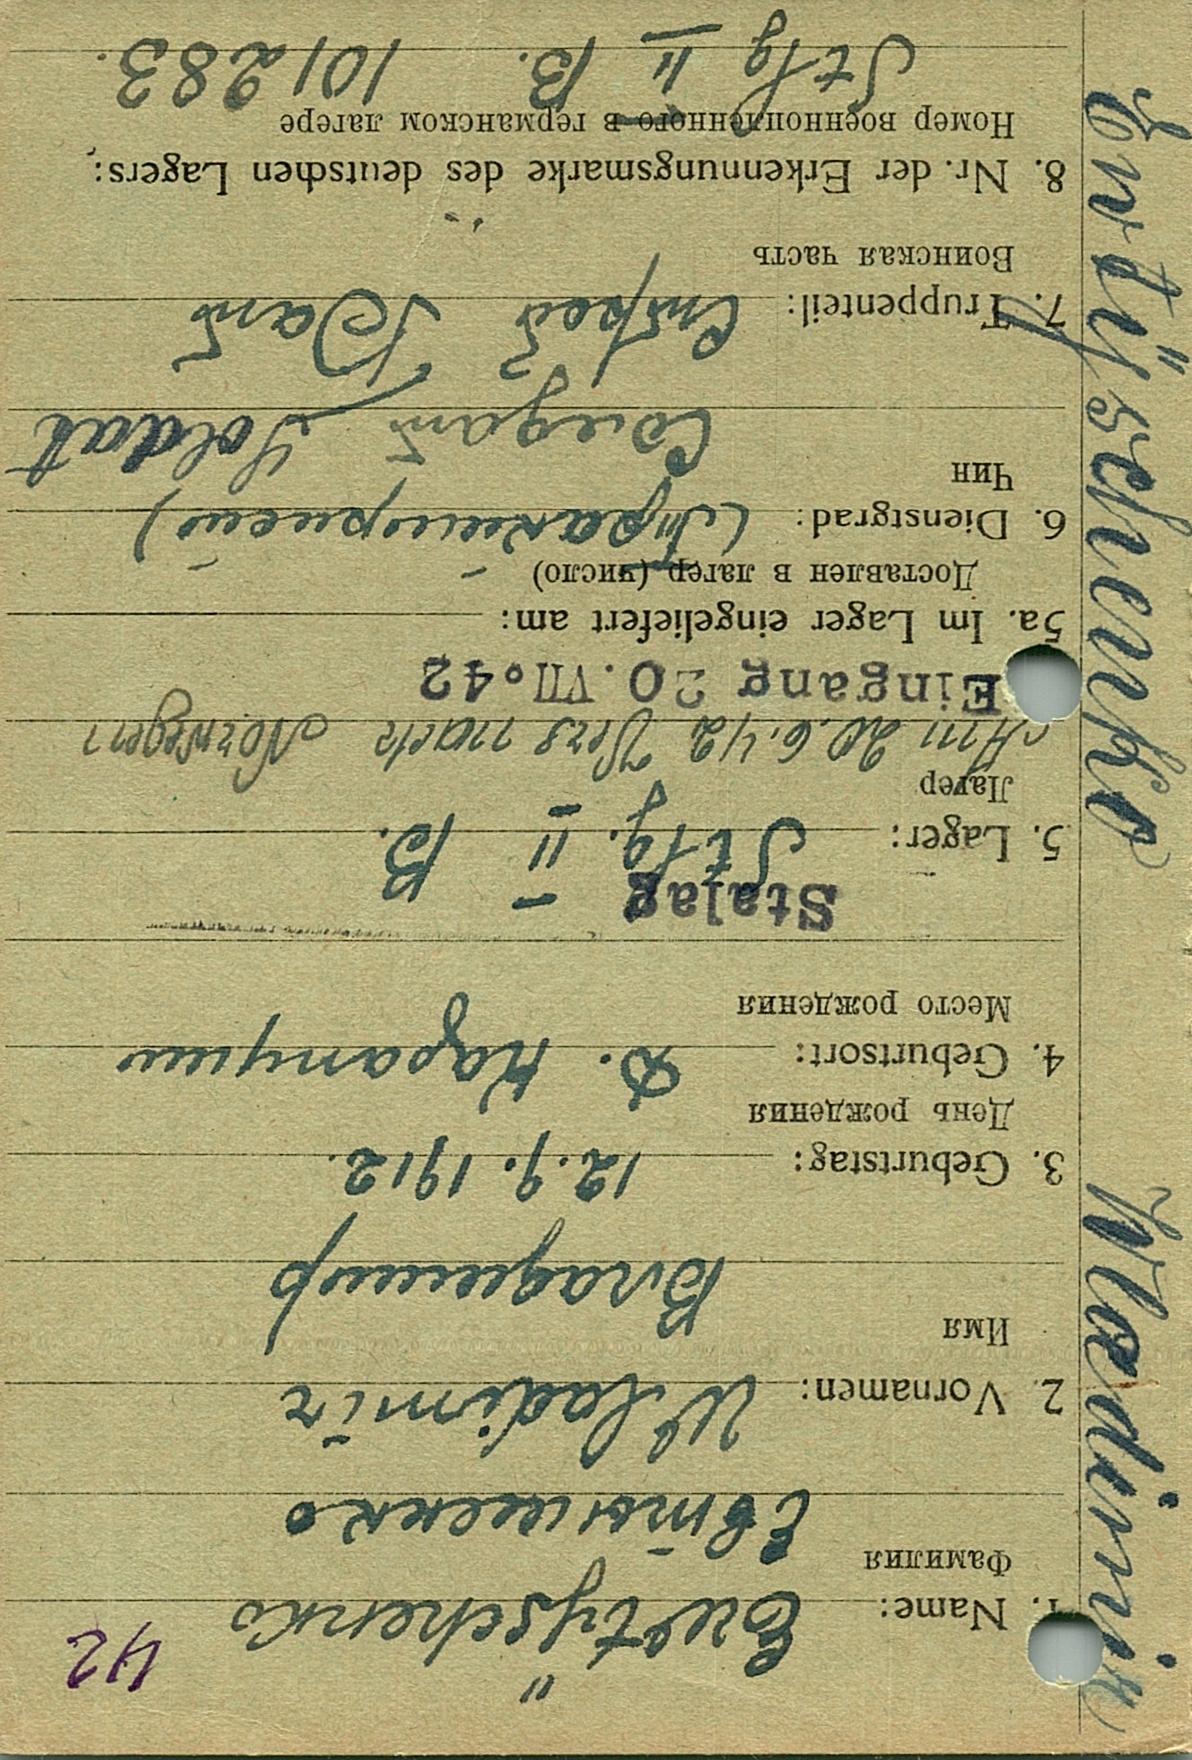 42
1. Name: Ewtÿschenko
Фамилия
Евтыщенко
2. Vornamen: Wladimir
Имя
Владимир
3. Geburtstag: 12.9.1912.
День рождения
4. Geburtsort: Д.
Место рождения
Stalag
5. Lager: Stlg. II B.
Лагер
Am 20.6.42 Vers nach Norwegen
Eingang 20.VII.42
5a. Im Lager eingeliefert am:
Доставлен в лагер (число)
6. Dienstgrad:
Чин
Солдат Soldat
7. Truppenteil: Бат
Воинская часть
8. Nr. der Erkennungsmarke des deutschen Lagers:
Номер военнопленного в германском лагере
Stlg II B. 101283.
Ewtÿschenko Wladimir